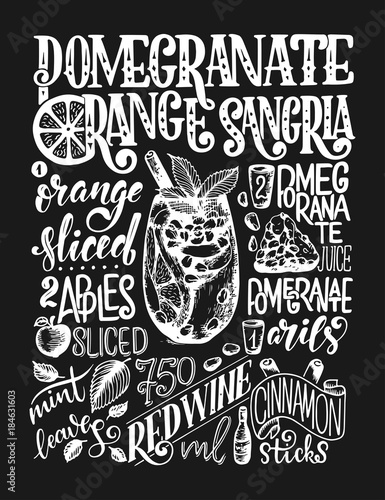 POMEGRANATE
ORANGE SANGRIA
1 orange
sliced
2 APPLES
SLICED
mint
leaves
2 POMEG
RANA
TE
JUICE
POMEGRANATE
1 arils
750
RED WINE
ml
CINNAMON
sticks
Adobe Stock | #184631603